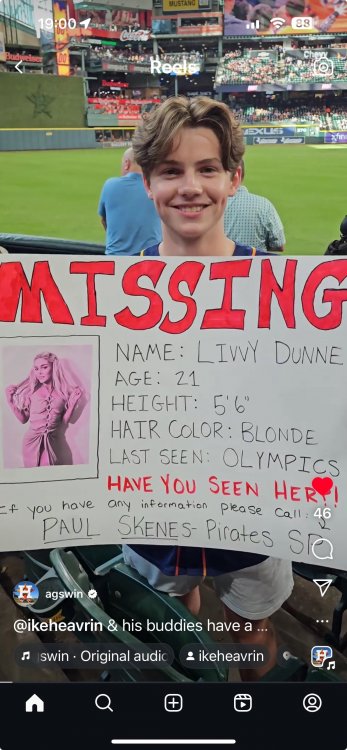 19:00
93
MUSTANG
Budweiser
Coca-Cola
Reels
LEXUS
MISSING
NAME: LIVVY DUNNE
AGE: 21
HEIGHT: 5'6"
HAIR COLOR: BLONDE
LAST SEEN: OLYMPICS
HAVE YOU SEEN HER?!
If you have any information please call:
PAUL SKENES - Pirates SP
46
agswin
@ikeheavrin & his buddies have a ...
swin · Original audio
ikeheavrin